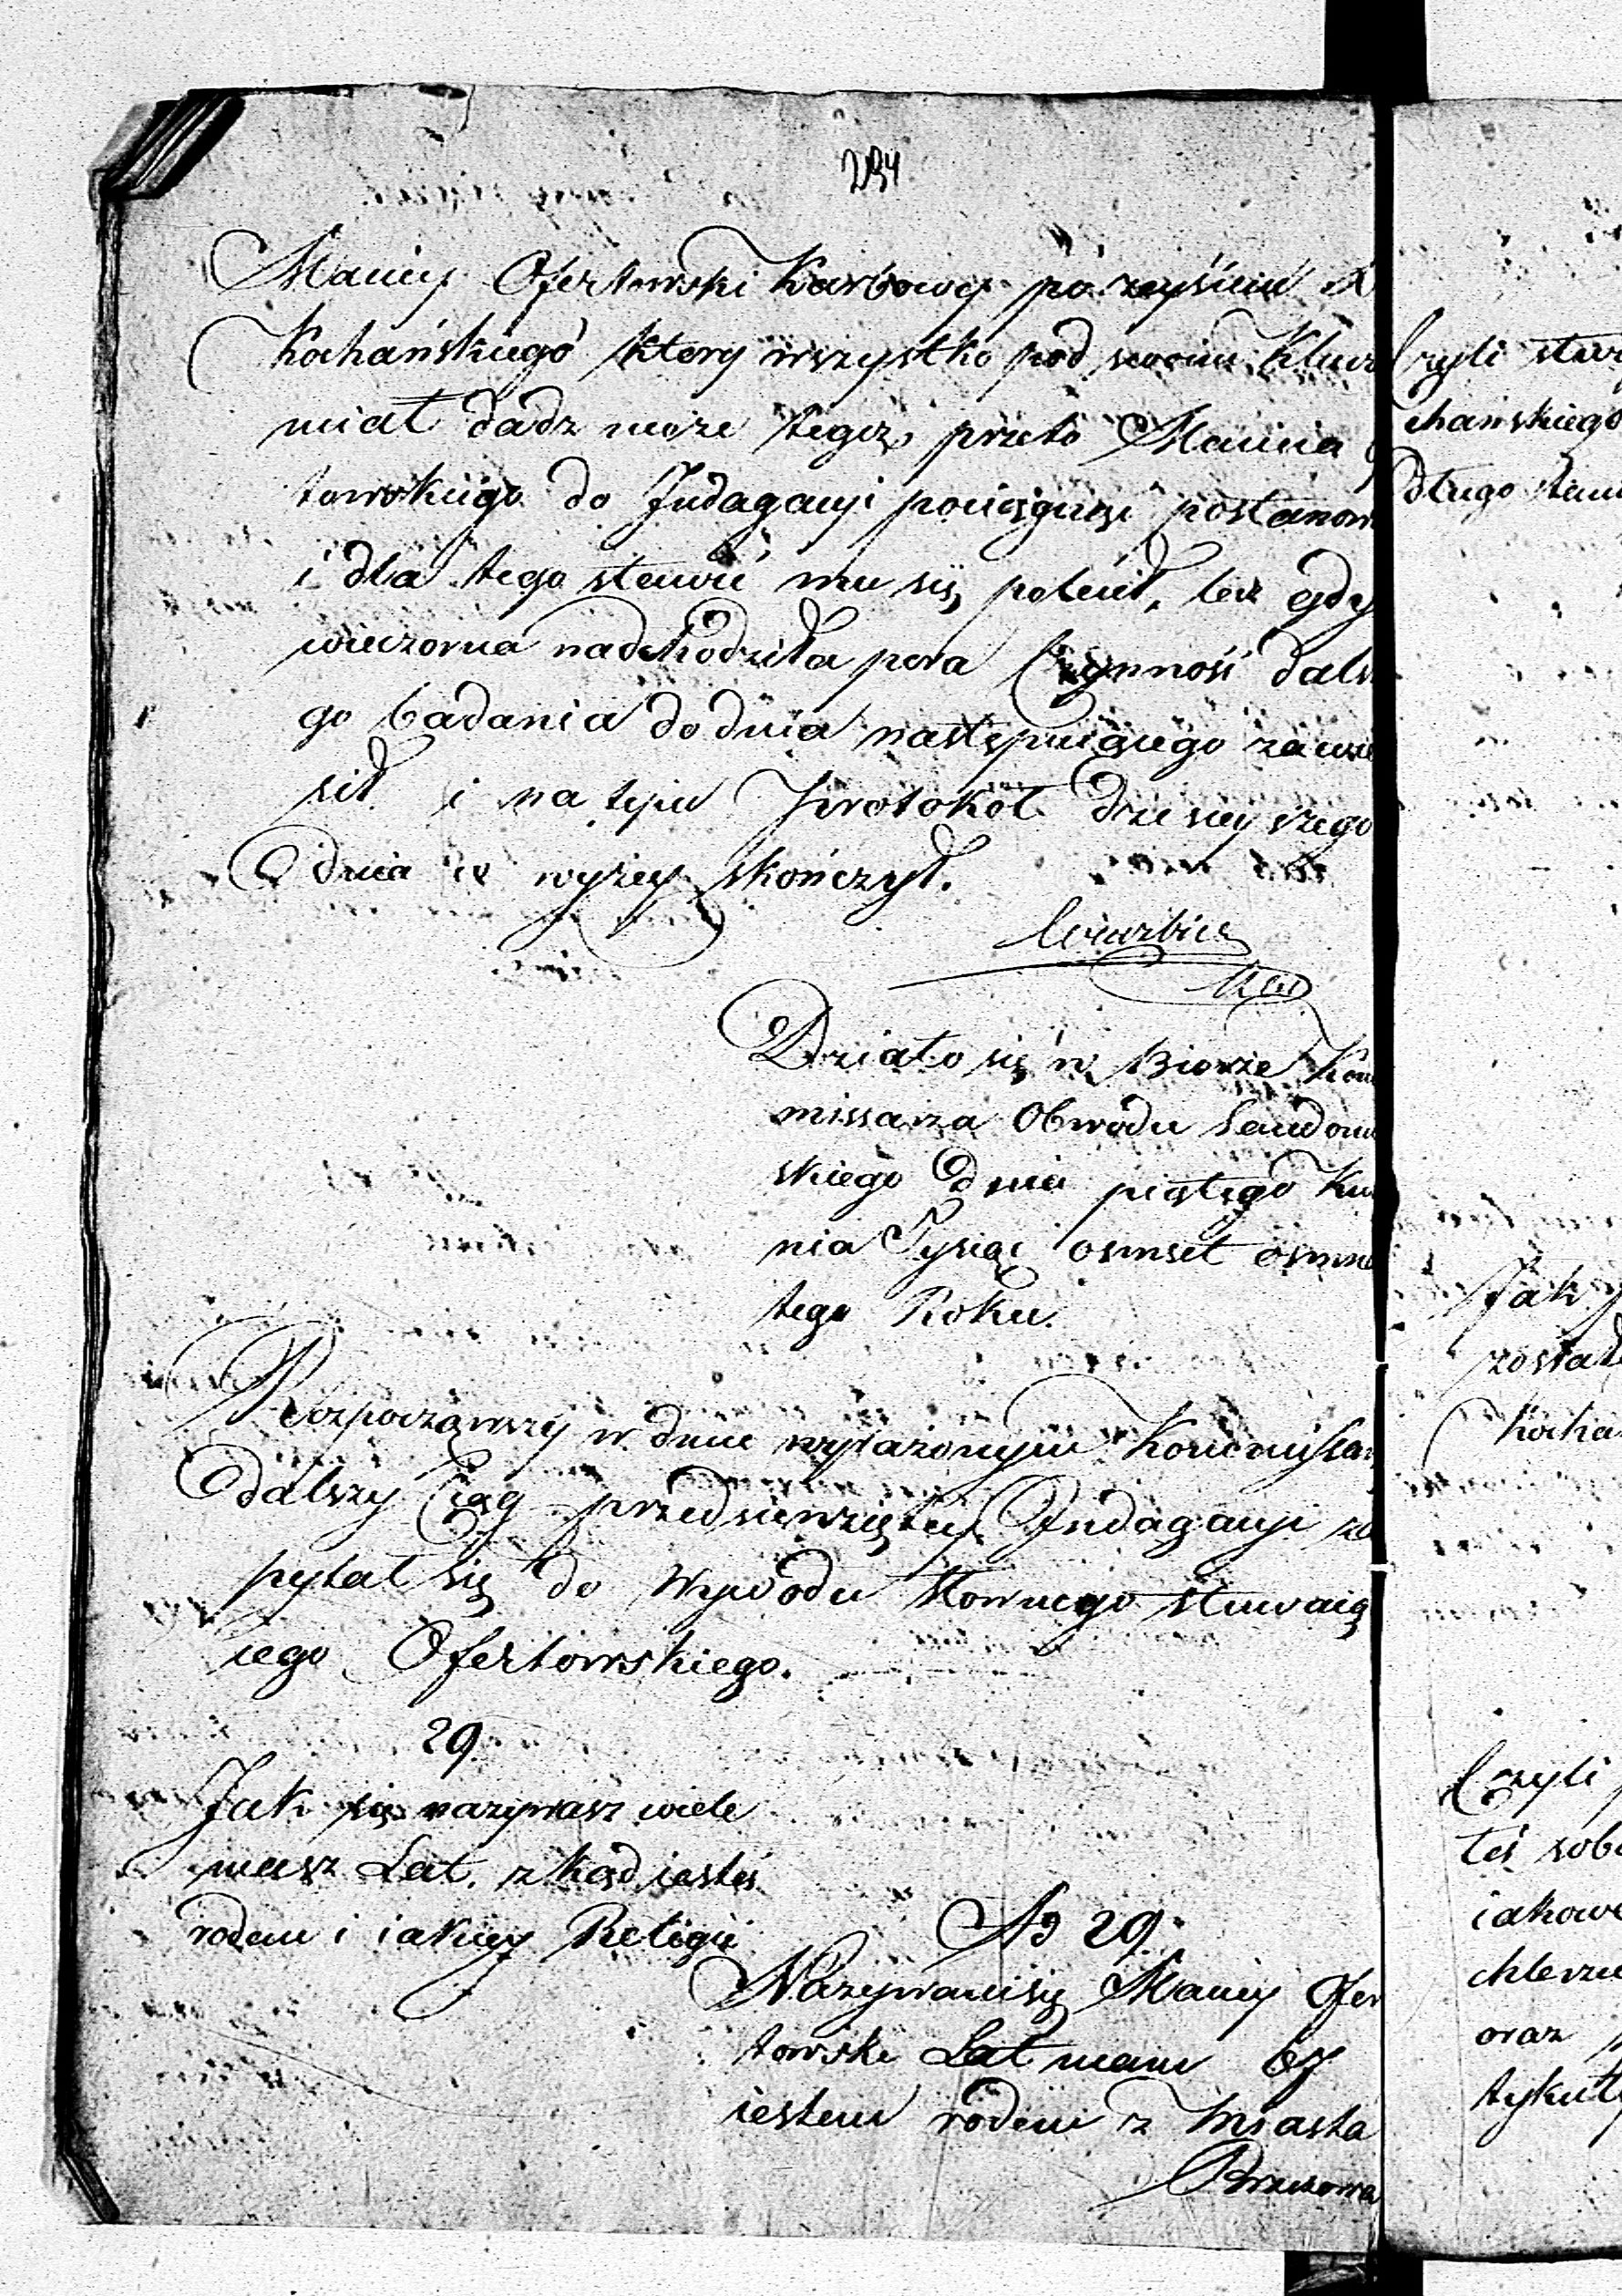 234
Maciey Ofertowski Karbowy po zeyściu X
Kochańskiego który wszystko pod swoim Klucz
miał dadz może tegoż, przeto Macieia
towskiego do Indagacyi pociągnąć postanow
i dla tego stawić mu się polecił, lecz gdy
wieczorna nadchodziła pora Czynność dals
go badania do dnia następuiącego zawie
sił i na tym Protokół dzisieyszego
dnia iv wyżey skończył.
Działo się w Biorze Kom
missarza Obwodu Sandom
skiego Dnia piątego Kw
nia Tysiąc osmset osmna
tego Roku.
Rozpocząwszy w dniu wyrażonym Kommissarz
dalszy Ciąg przedsiewziętey Indagacyi za
pytał się do Wywodu słownego stawaią
cego Ofertowskiego.
29.
Jak się nazywasz wiele
masz Lat, zkąd iesteś
rodem i iakiey Religii
Ad 29.
Nazywam się Maciey Ofer
towski Lat mam 67
iestem rodem z Miasta
Brzozowa
czyli staw
chańskiego
długo
Jak
został
Kocha
Czyli
teś sob
iakowe
oraz